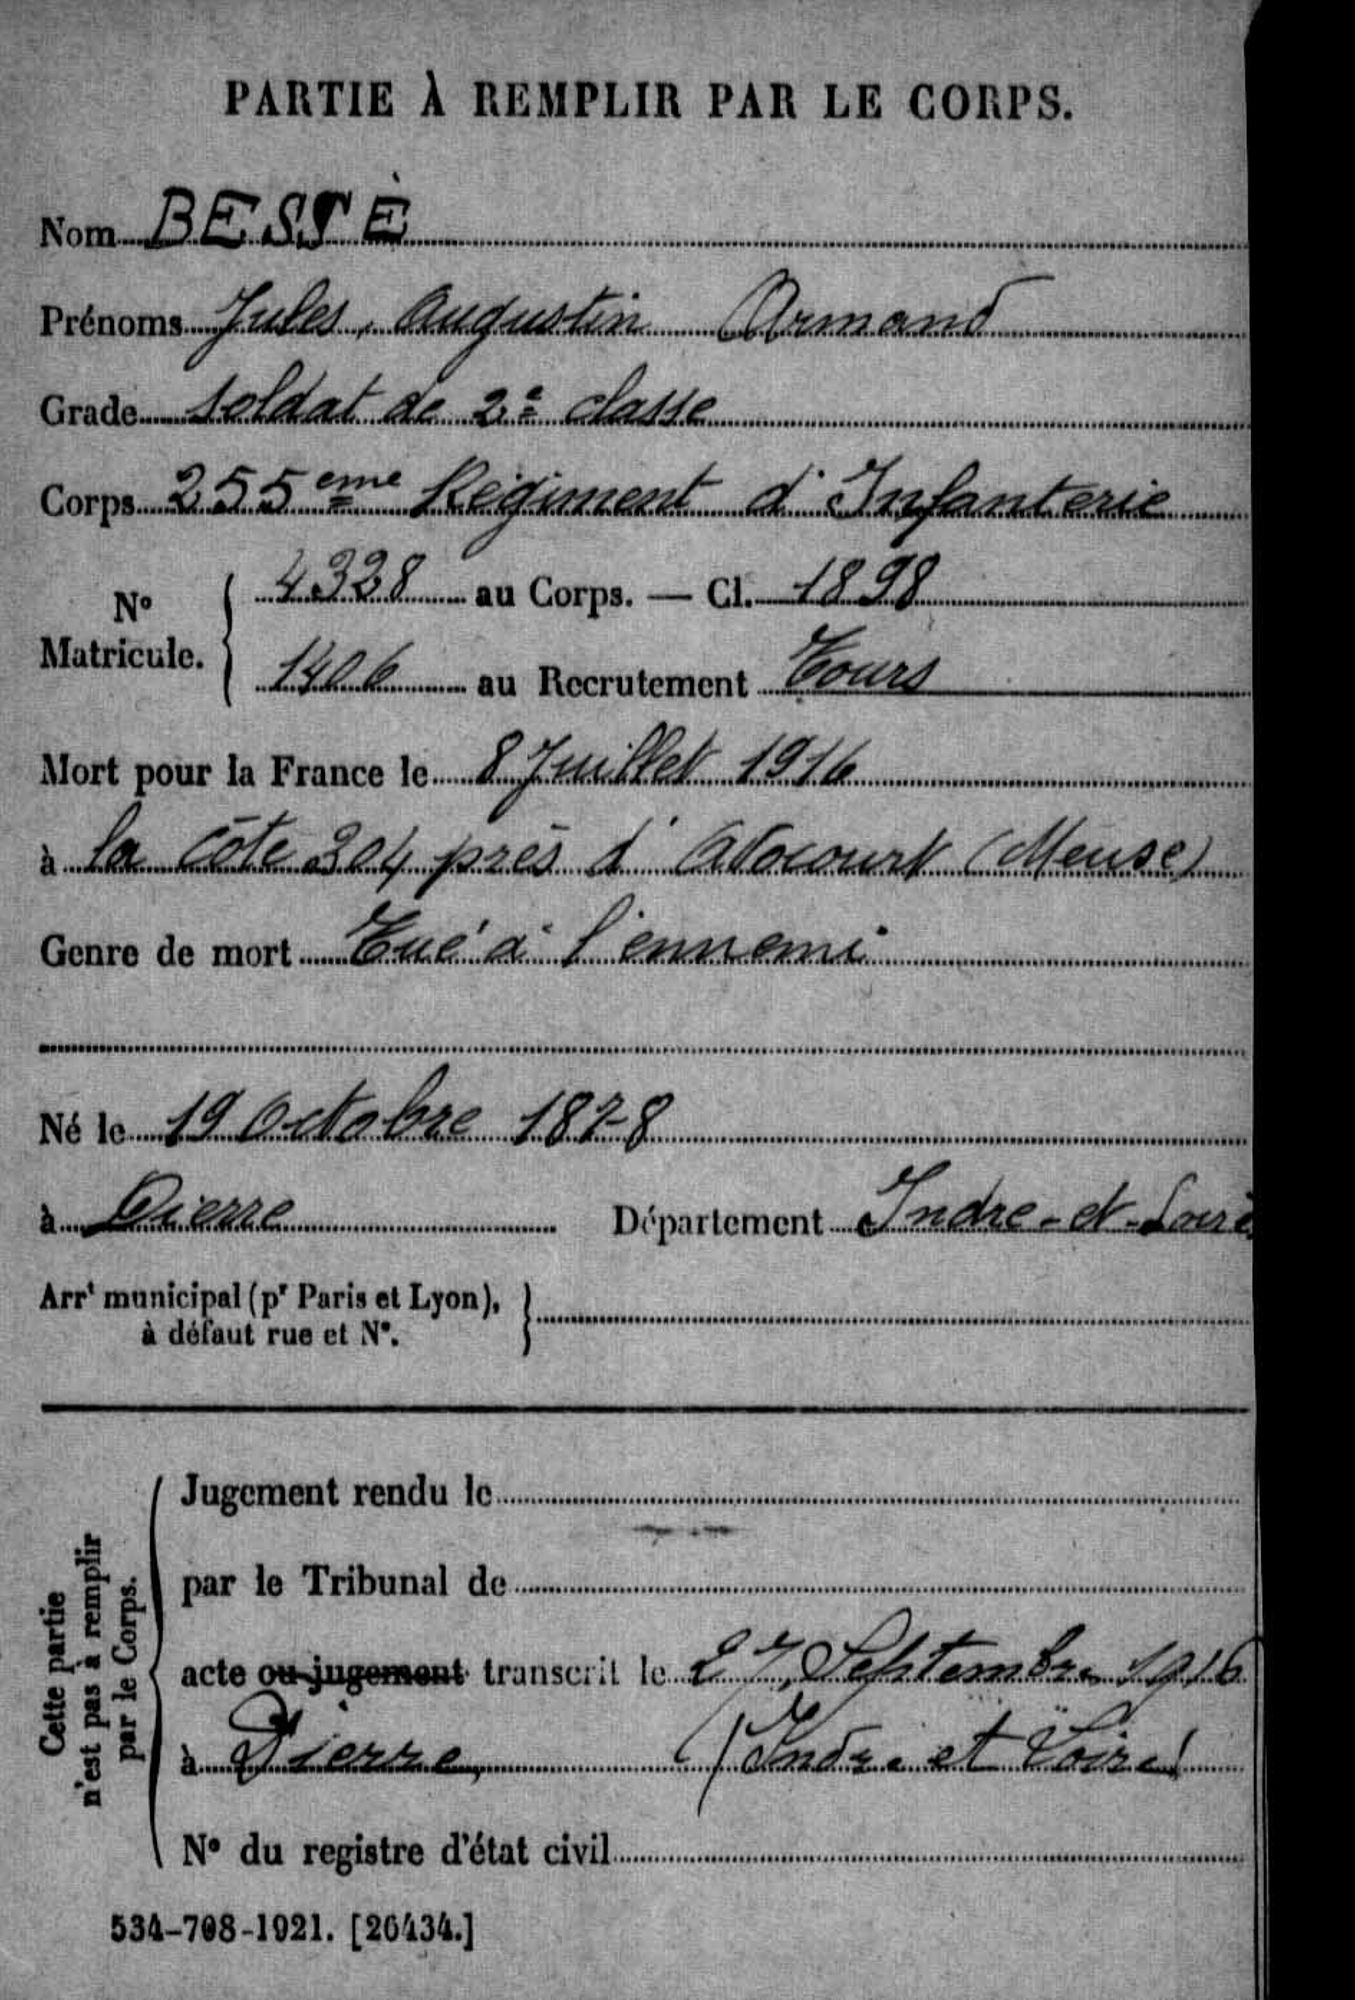 PARTIE À REMPLIR PAR LE CORPS.
Nom BESSÉ
Prénoms Jules, Augustin Armand
Grade soldat de 2e classe
Corps 255eme Régiment d'Infanterie
No Matricule. 4328 au Corps. — Cl. 1898
1406 au Recrutement Tours
Mort pour la France le 8 Juillet 1916
à la côte 304 près d'Avocourt (Meuse)
Genre de mort Tué à l'ennemi
Né le 19 Octobre 1878
à Dierre Département Indre-et-Loire
Arrt municipal (pr Paris et Lyon),
à défaut rue et No.
Cette partie
n'est pas à remplir
par le Corps.
Jugement rendu le
par le Tribunal de
acte ou jugement transcrit le 27 Septembre 1916
à Dierre, (Indre et Loire)
No du registre d'état civil
534-708-1921. [26434.]